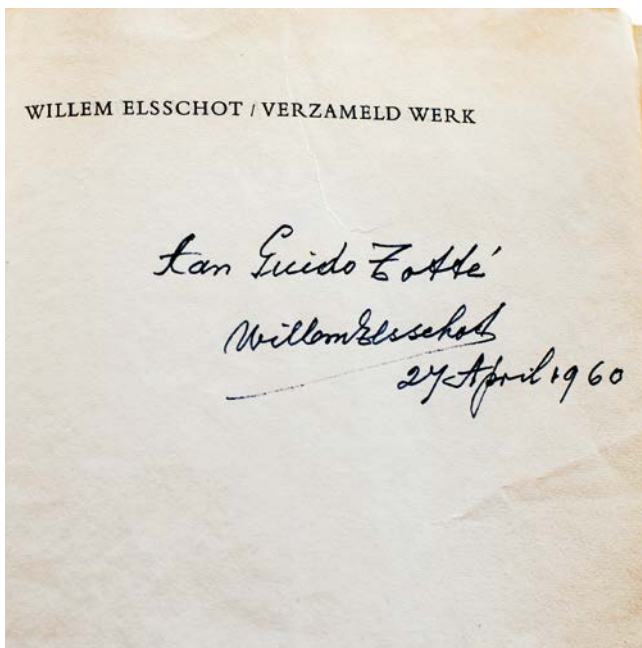 WILLEM ELSSCHOT / VERZAMELD WERK
Aan Guido Zotté
Willem Elsschot
27 April 1960